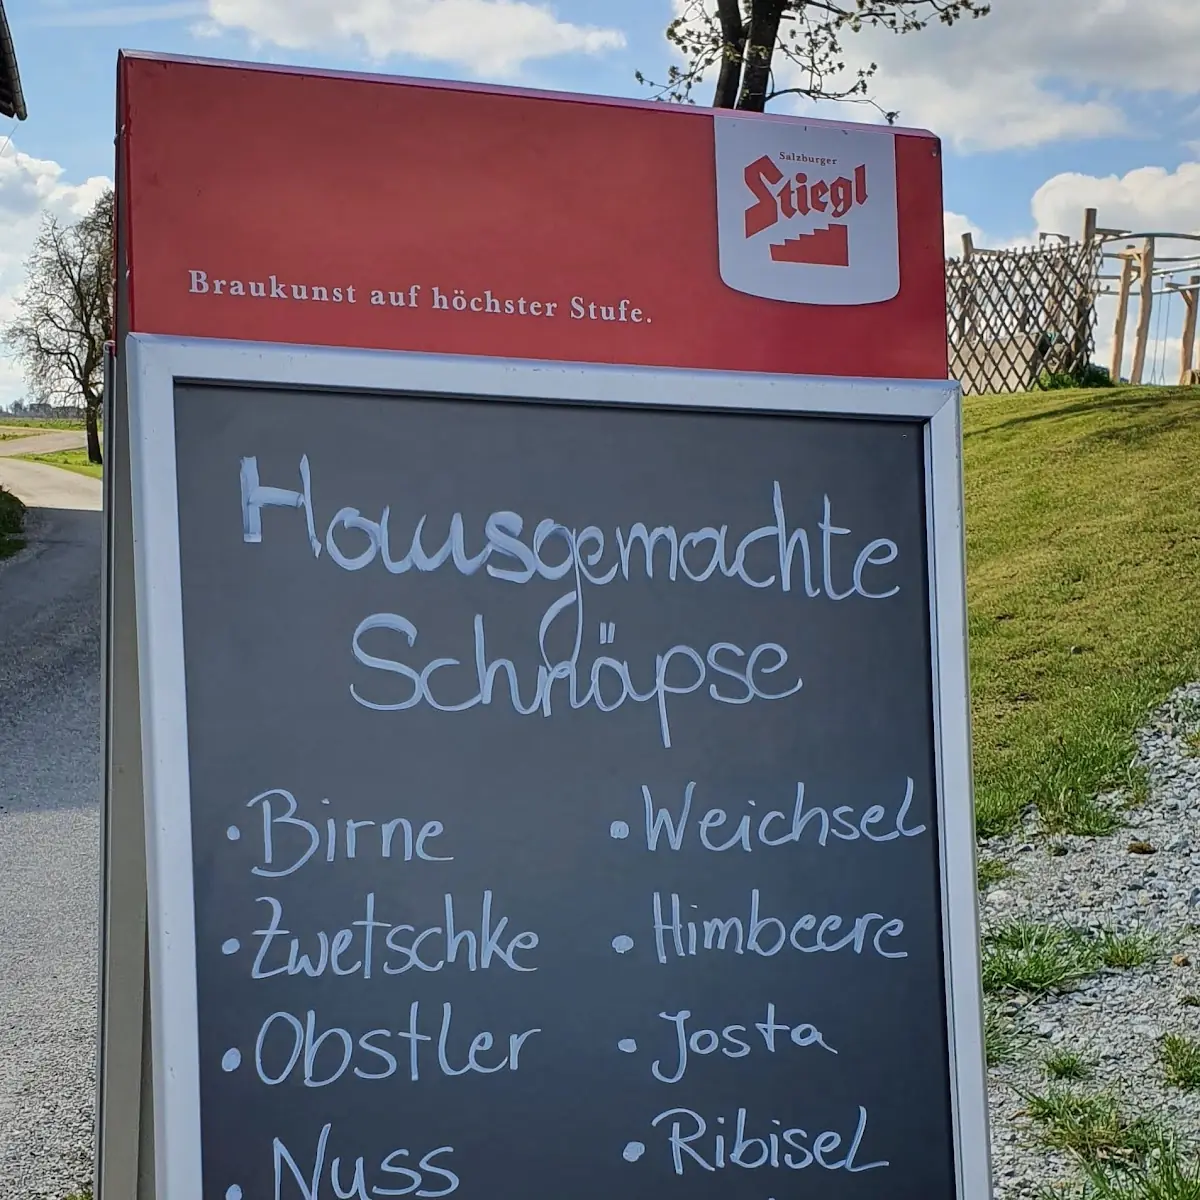 Salzburger
Stiegl
Braukunst auf höchster Stufe.
Hausgemachte
Schnäpse
• Birne
• Zwetschke
• Obstler
• Nuss
• Weichsel
• Himbeere
• Josta
• Ribisel